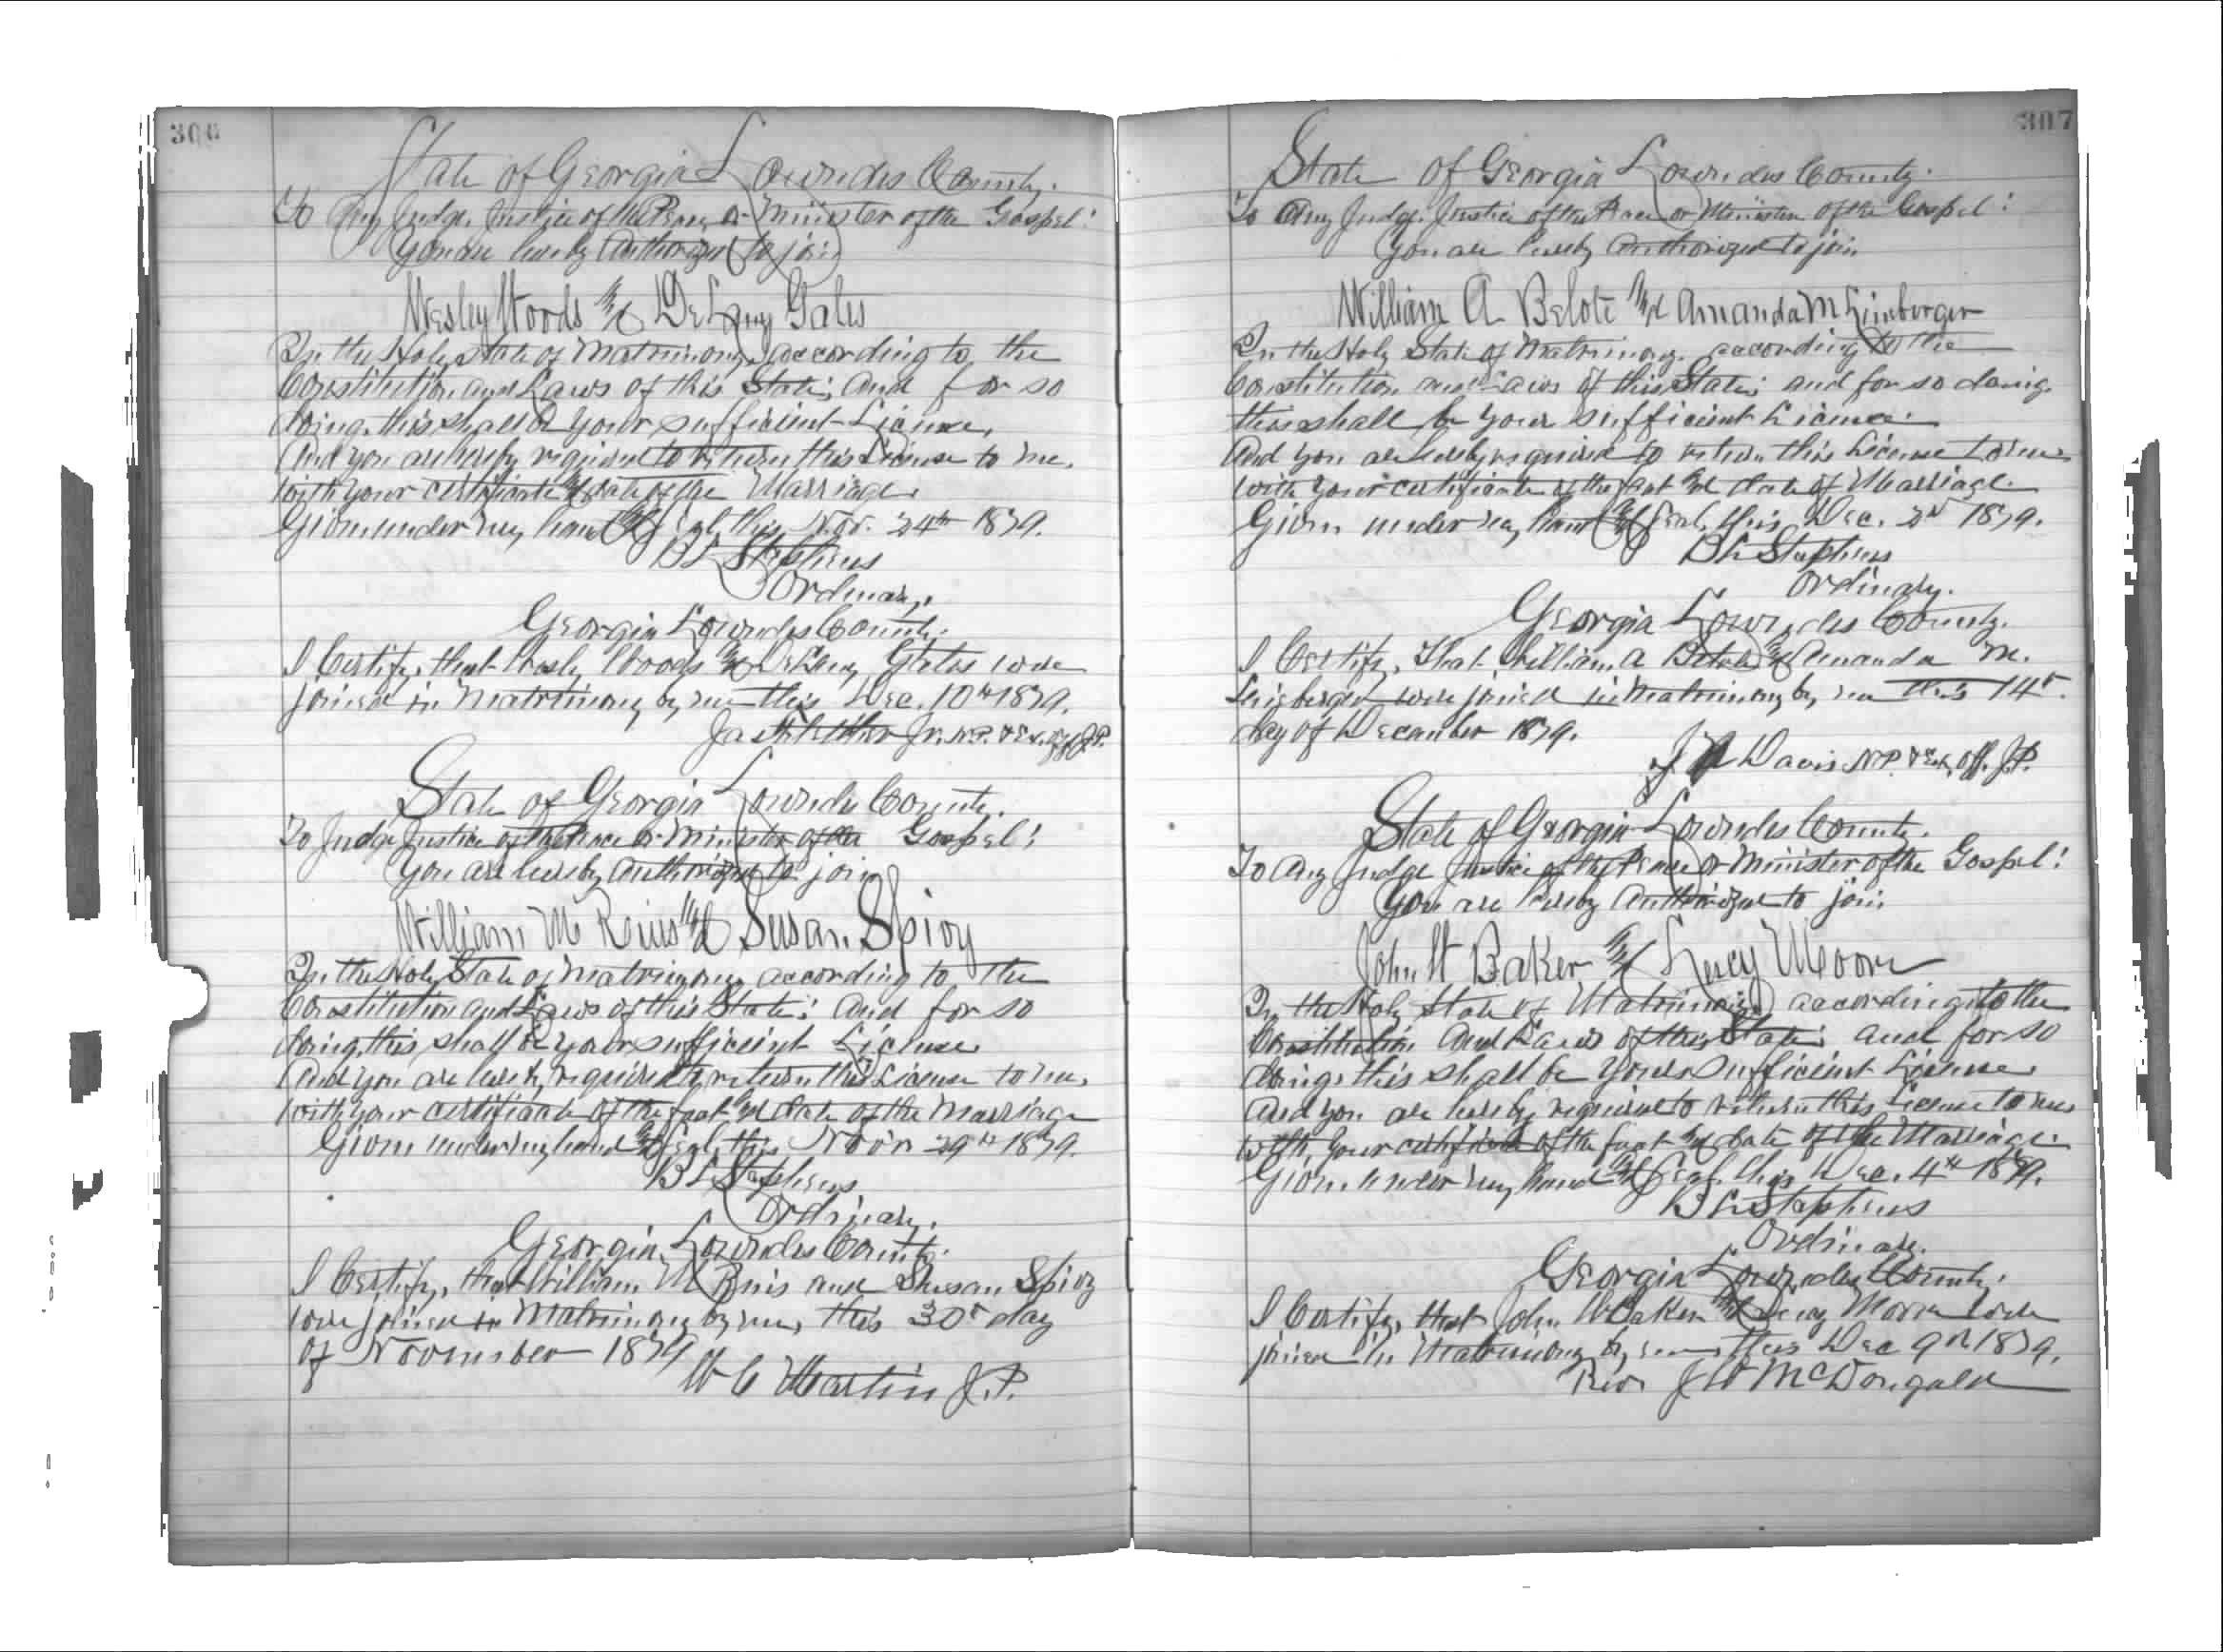 306
State of Georgia Lowndes County.
To Any Judge, Justice of the Peace, or Minister of the Gospel:
You are hereby Authorized to join
Wesley Woods and DeLany Gates
In the Holy State of Matrimony, according to the
Constitution and Laws of this State; and for so
doing, this shall be your sufficient License,
And you are hereby required to return this License to me,
with your certificate and date of the Marriage.
Given under my hand and seal, this Nov. 24th 1879.
B L Stephens
Ordinary.
Georgia Lowndes County.
I Certify, that Wesly Woods and DeLany Gates were
joined in Matrimony by me this Dec. 10th 1879.
Jr. N.P. & Ex. Off J.P.
State of Georgia Lowndes County.
To Judge Justice of the Peace or Minister of the Gospel:
You are hereby Authorized to join
William M Reius and Susan Spivy
In the Holy State of Matrimony according to the
Constitution and Laws of this State; and for so
doing, this shall be your sufficient License
And you are hereby required to return this License to me,
with your certificate of the fact and date of the Marriage
Given under my hand and seal, this Novr 29th 1879.
B L Stephens
Ordinary.
Georgia, Lowndes County.
I Certify, that William M and Susan Spivy
were joined in Matrimony by me, this 30th day
of November 1879
W C Martin J.P.
307
State of Georgia Lowndes County.
To Any Judge, Justice of the Peace or Minister of the Gospel:
You are hereby Authorized to join
William A. Belote and Amanda M Lineberger
In the Holy State of Matrimony, according to the
Constitution and Laws of this State; and for so doing.
this shall be your sufficient License.
And you are hereby required to return this License to me
with your certificate of the fact and date of Marriage.
Given under my hand and seal, this Dec. 2d 1879.
B L Stephens
Ordinary.
Georgia Lowndes County.
I Certify, That William A Belote and Amanda M.
Lineberger were joined in Matrimony by me this 14th
day of December 1879.
Davis N.P. & Ex. Off. J.P.
State of Georgia Lowndes County.
To Any Judge Justice of the Peace or Minister of the Gospel:
You are hereby Authorized to join
John W Baker and Lucy Moore
In the Holy State of Matrimony according to the
Constitution and Laws of this State; and for so
doing, this shall be your sufficient License
And you are hereby required to return this License to me
with your certificate of the fact and date of the Marriage.
Given under my hand and seal, this Dec. 4th 1879.
B L Stephens
Ordinary.
Georgia Lowndes County.
I Certify, that John W Baker and Lucy Moore were
joined in Matrimony by me this Dec 9th 1879.
Rev J W McDongald